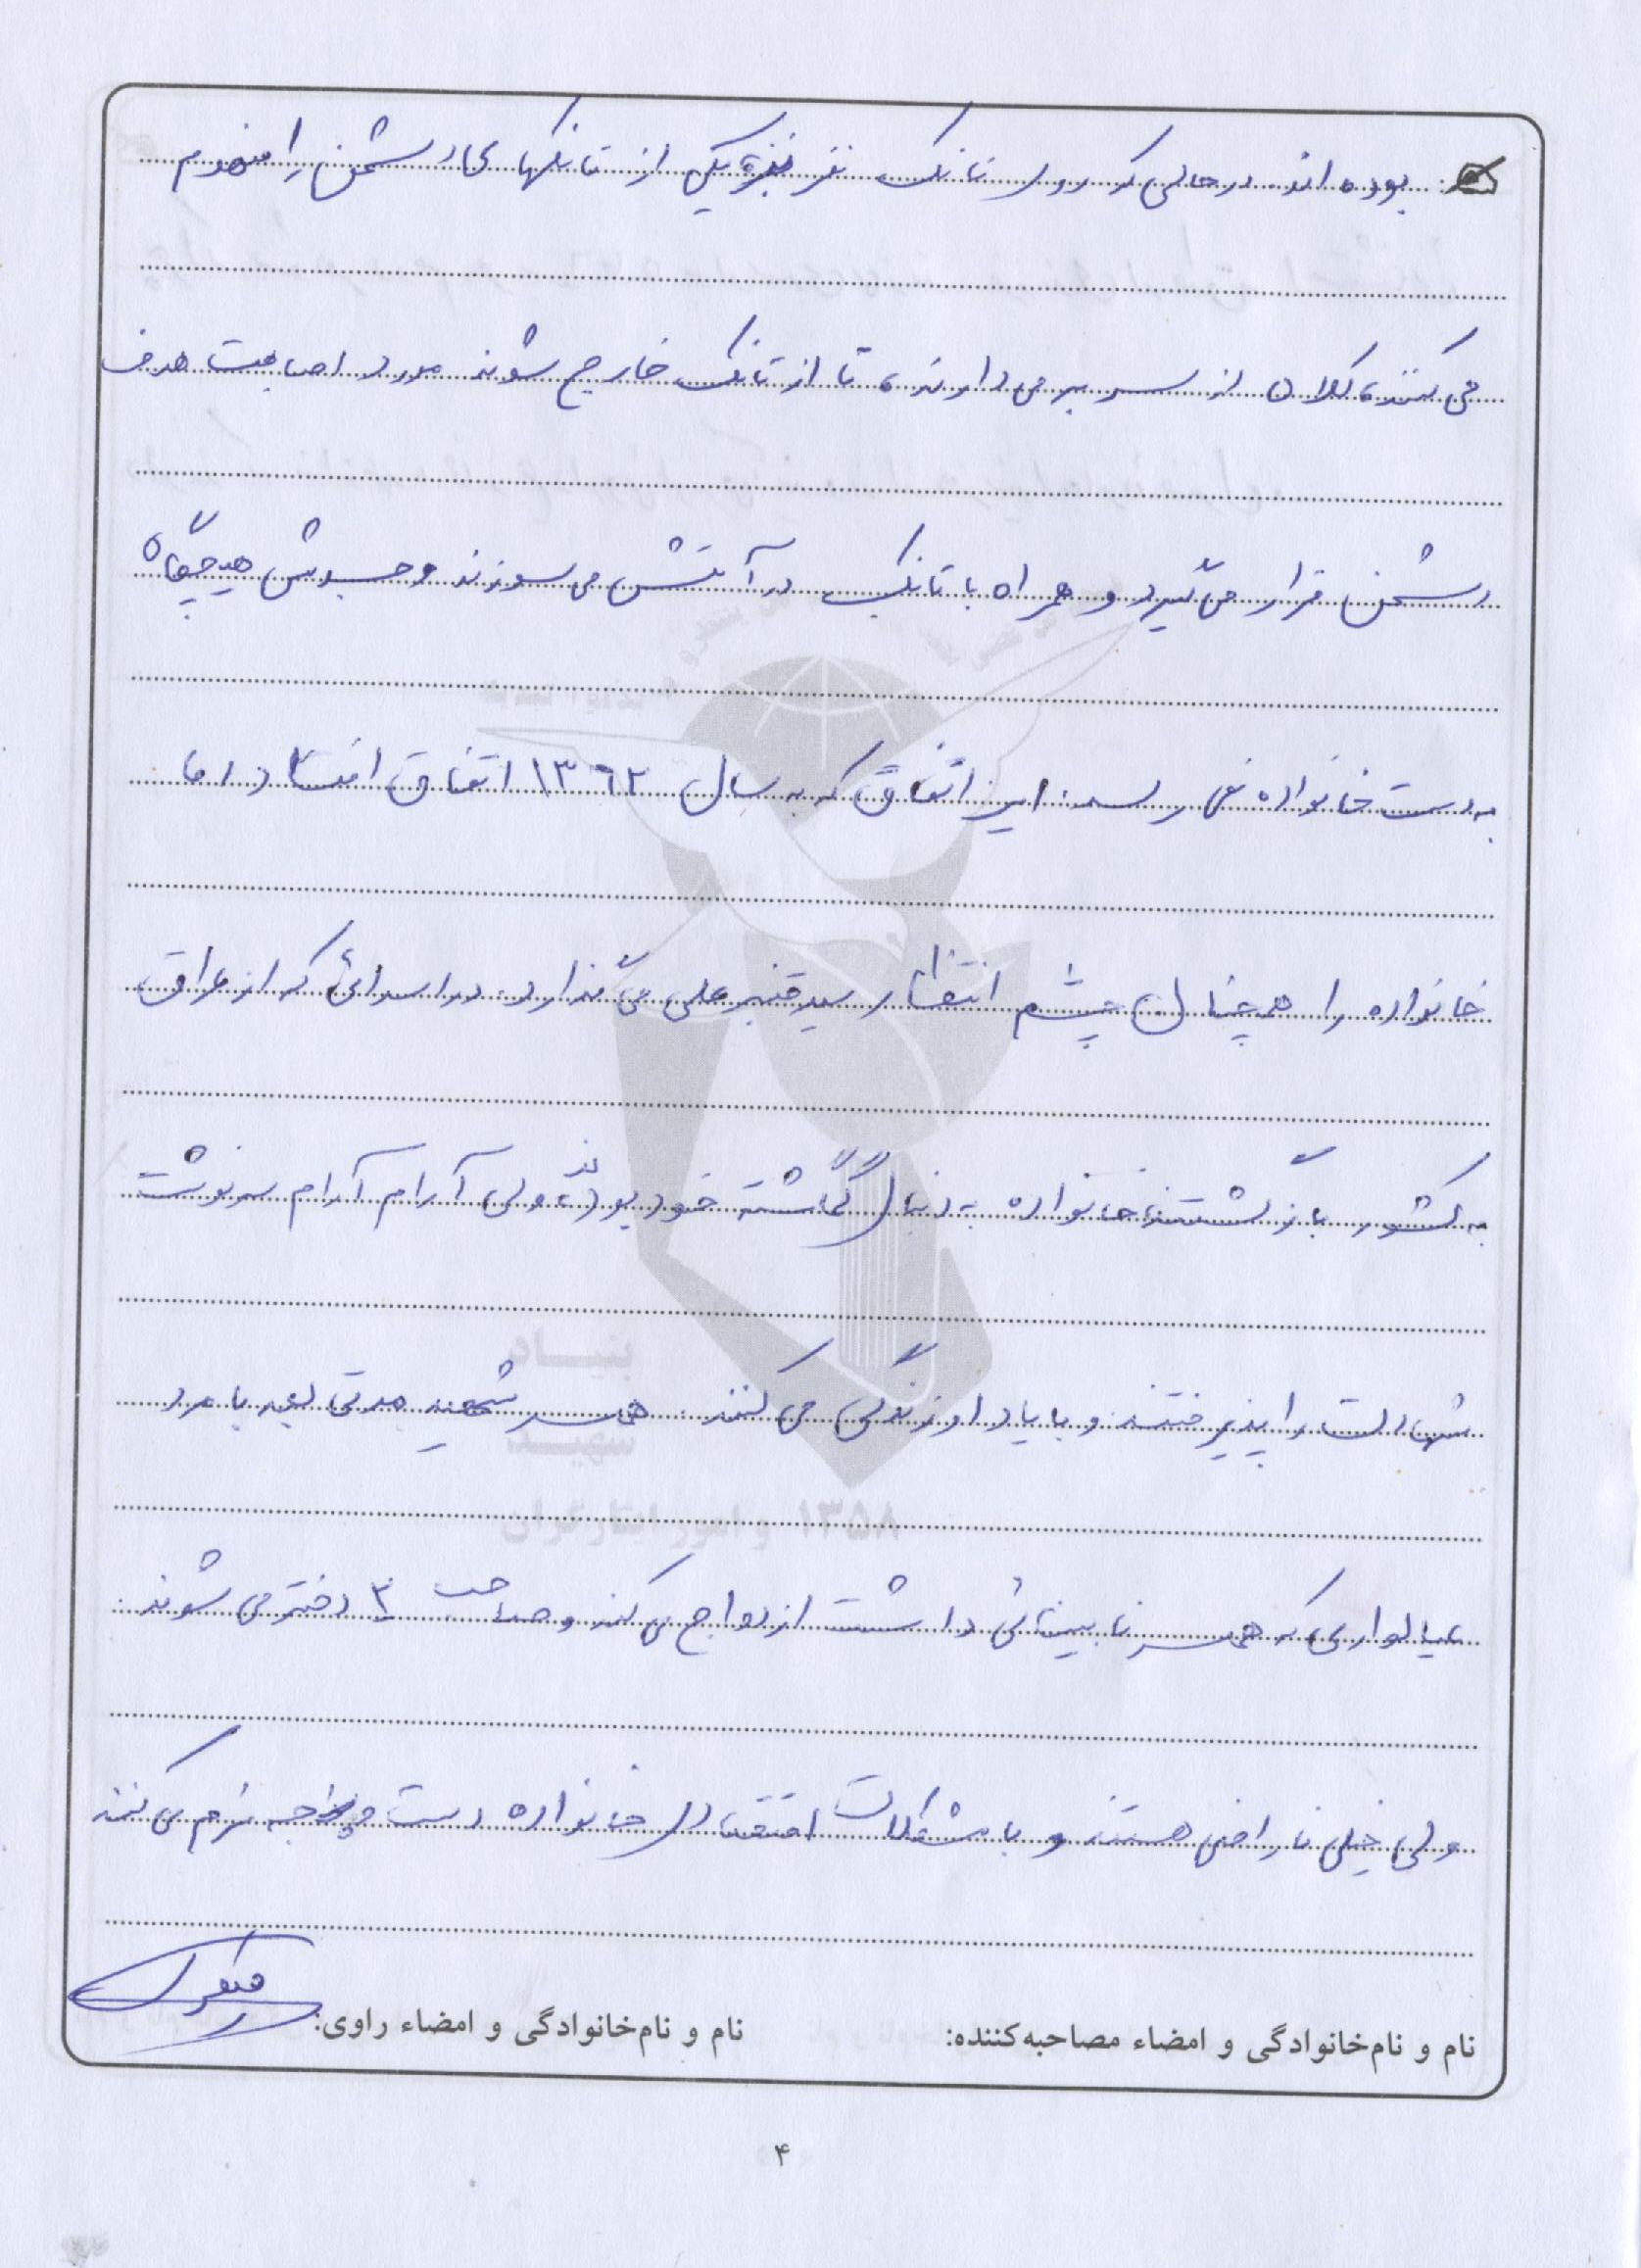 بوده اند. در حالی که روی تانک نفر یکی از تانکها دشمن را منهدم
می کنند، کلاه از سر بر می دارند، تا از تانک خارج شوند مورد اصابت هدف
دشمن قرار می گیرد و همراه با تانک در آتش می سوزند و جسدش هیچگاه
به دست خانواده نمی رسد. این اتفاق که به سال ۱۳۶۲ اتفاق افتاد اما
خانواده را همچنان چشم انتظار سید قنبر علی می گذارد. در اسرائی که از عراق
به کشور بازگشتند، خانواده به دنبال گمگشته خود بودند، ولی آرام آرام سرنوشت
شهادت را پذیرفتند و با یاد او زندگی می کنند. همسر شهید مدتی بعد با مرد
عیالواری که همسر نابینائی داشت ازدواج می کند و صاحب ۳ دختر می شوند.
ولی خیلی ناراضی هستند و با مشکلات اقتصادی خانواده دست و پنجه نرم می کنند
نام و نام‌خانوادگی و امضاء مصاحبه‌کننده: نام و نام‌خانوادگی و امضاء راوی:
۴
بنیاد
شهید
و امور ایثارگران ۱۳۵۸